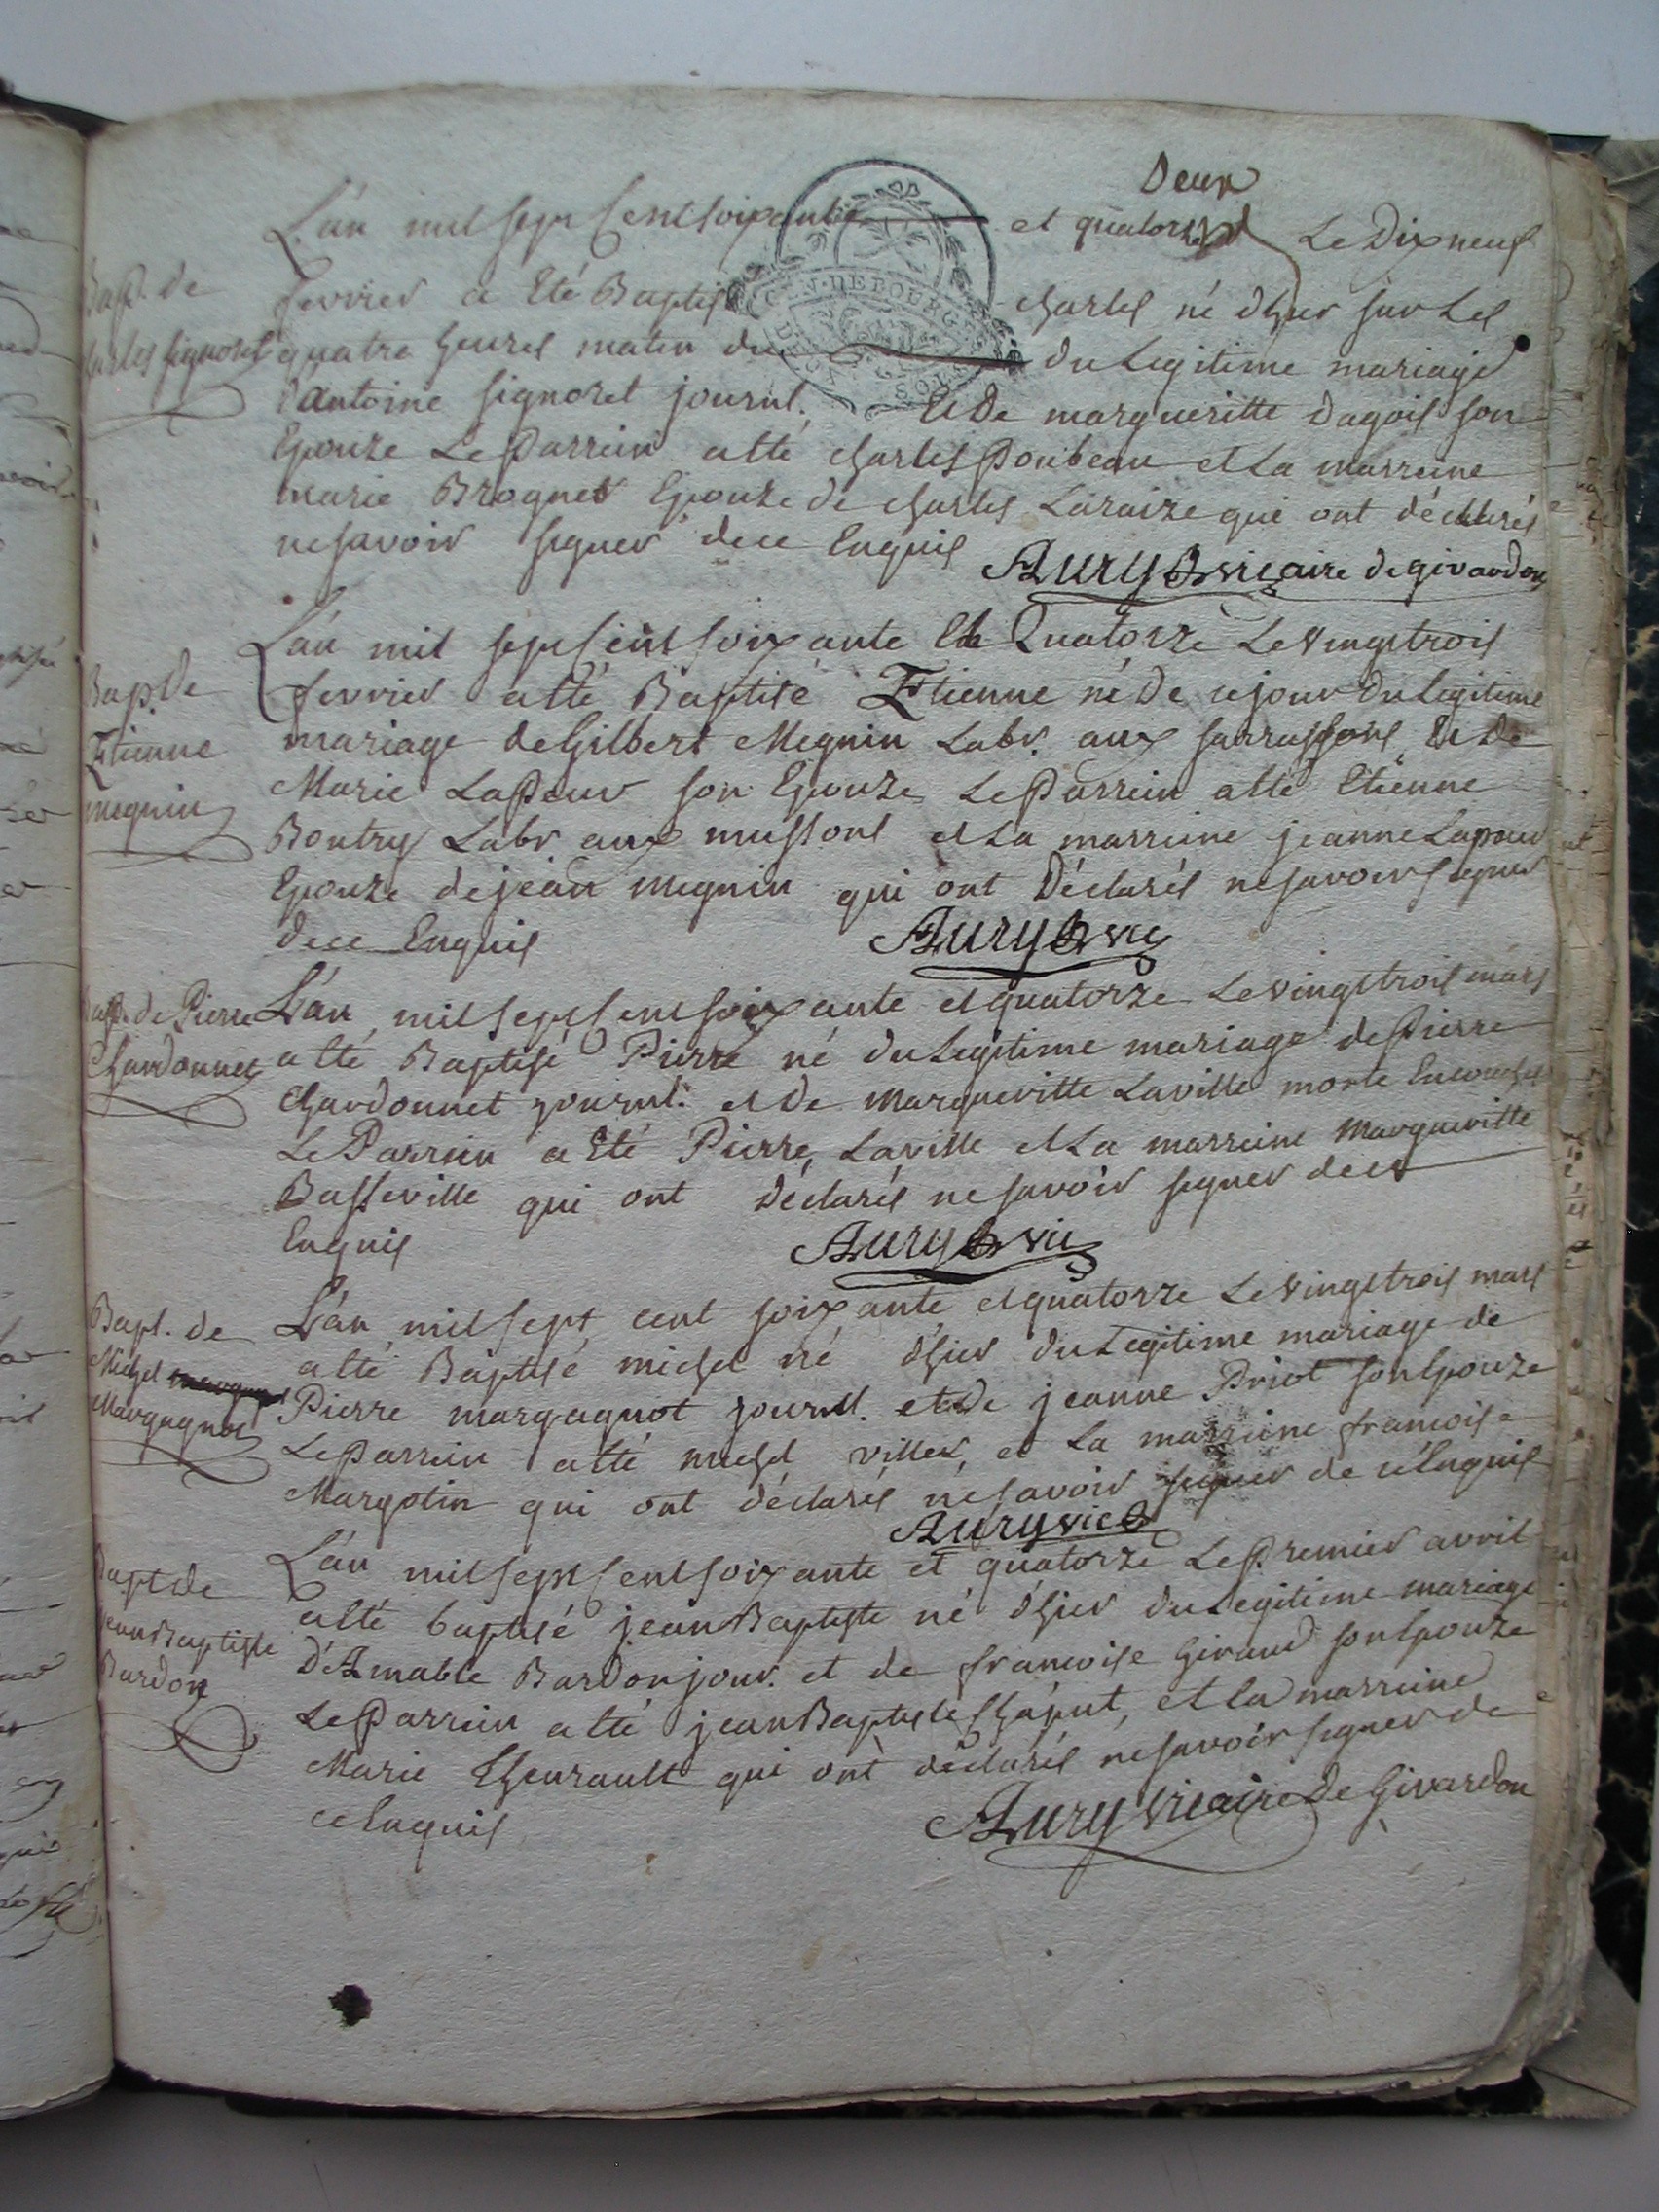 Deux
L'án mil sept Cent soixante et quatorze Le Dix neuf
Bapt. de
Charles signoret
fevrier a Eté Baptisé charles né dhier sur Les
quatre heures matin du du Legitime mariage
d'antoine signoret journl. Et De margueritte dagois son
Epouze Le Parrein a Eté charles Poubeau et La marreine
marie Brognet Epouze de charles Laraize qui ont déclarés
ne savoir signer de ce Enquis
Aury vicaire de givardon
Bap. de
Etienne
megnin
L'án mil sept Cent soixante Et Quatorze Le vingt trois
fevrier a Eté Baptisé Etienne né De ce jour Du Legitime
mariage de Gilbert Megnin Labr. aux sarrassons Et De
Marie LaPour son Epouze Le Parrein a Eté Etienne
Boutry Labr aux mussons et La marreine jeanne Lapour
Epouze de jean megnin qui ont Déclarés ne savoir signer
de ce Enquis
Aury vic
Bap. de Pierre
Chardonnet
L'án mil sept Cent soixante et quatorze Le vingt trois mars
a Eté Baptisé Pierre né du Legitime mariage de Pierre
Chardonnet journl. et De Margueritte Laville morte En couches
Le Parrein a Eté Pierre Laville et La marreine Margueritte
Basseville qui ont déclarés ne savoir signer de ce
Enquis
Aury vic
Bapt. de
Michel
Margagnot
L'án mil sept cent soixante et quatorze Le vingt trois mars
a Eté Baptisé michel né d'hier du Legitime mariage de
Pierre margagnot journl. et De jeanne Priot son Epouze
Le Parrein a Eté michel villet, et La marreine francoise
Margotin qui ont déclarés ne savoir signer de ce Enquis
Aury vic
Bapt de
jean Baptiste
Bardon
L'án mil sept Cent soixante et quatorze Le Premier avril
a Eté baptisé jean Baptiste né d'hier du Legitime mariage
d'Amable Bardon jour. et de francoise Giraud son Epouze
Le Parrein a Eté jean Baptiste Chaput, et la marreine
Marie Theurault qui ont déclarés ne savoir signer de
ce Enquis
Aury vicaire de Givardon